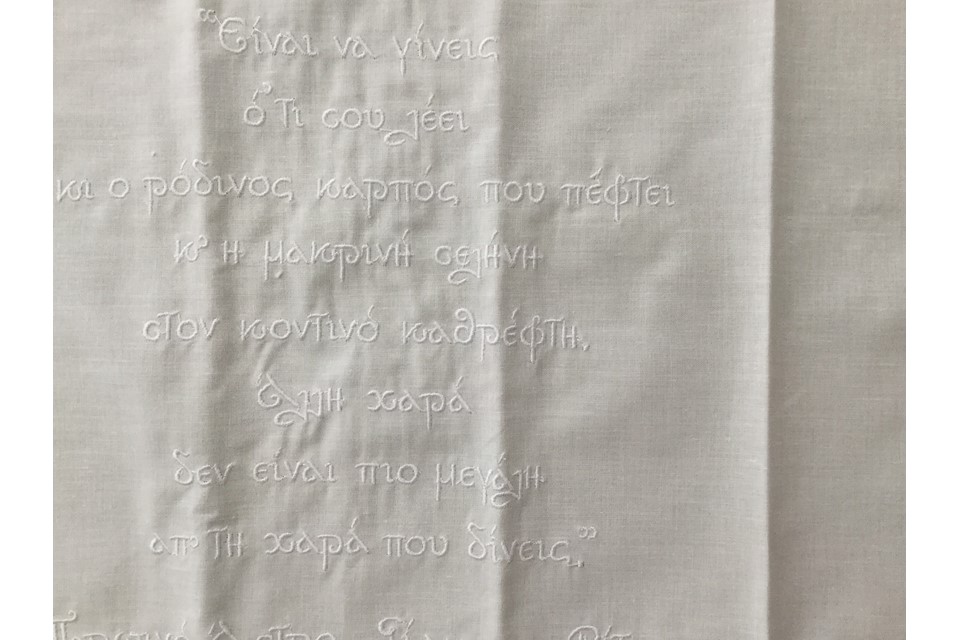 "Είναι να γίνεις
ό,τι σου λέει
κι ο ρόδινος καρπός που πέφτει
κ' η μακρινή σελήνη
στον κοντινό καθρέφτη.
Άλλη χαρά
δεν είναι πιο μεγάλη
απ' τη χαρά που δίνεις."